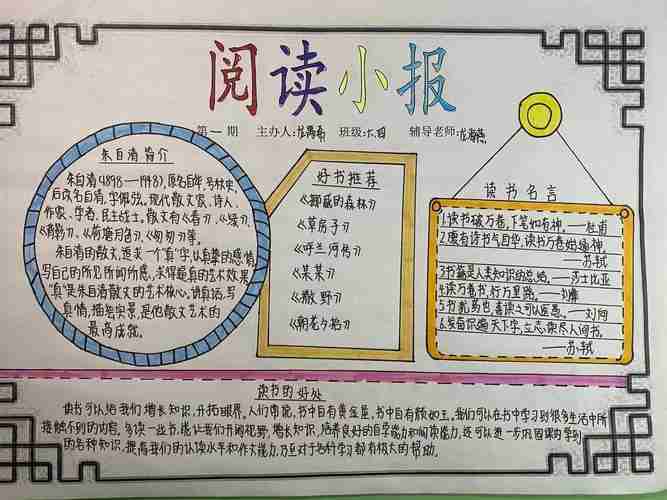 阅读小报
第一期 主办人: 班级:六 辅导老师:
朱自清简介
朱自清(1898—1948),原名自华,号秋实,
后改名自清,字佩弦。现代散文家、诗人、
作家、学者、民主战士。散文有《春》、《绿》、
《背影》、《荷塘月色》、《匆匆》等。
朱自清的散文,追求一个"真"字,以真挚的感情
写自己的所见所闻所感,求得逼真的艺术效果
"真"是朱自清散文的艺术核心,讲真话,写
真情,描绘实景,是他散文艺术的
最高成就。
好书推荐
《挪威的森林》
《草房子》
《呼兰河传》
《呆呆》
《撒野》
《朝花夕拾》
读书名言
1.读书破万卷,下笔如有神。——杜甫
2.腹有诗书气自华,读书万卷始通神
——苏轼
3.书籍是人类知识的总结。——莎士比亚
4.读万卷书,行万里路。——刘彝
5.书犹药也,善读之可以医愚。——刘向
6.发奋识遍天下字,立志读尽人间书。
——苏轼
读书的好处
读书可以给我们增长知识,开拓眼界。人们常说,书中自有黄金屋,书中自有颜如玉。我们可以在书中学习到很多生活中所
接触不到的内容,多读一些书,能让我们开阔视野,增长知识,培养良好的自学能力和阅读能力,还可以进一步巩固课内学到
的各种知识,提高我们的认读水平和作文能力,乃至对于各科学习都有极大的帮助。